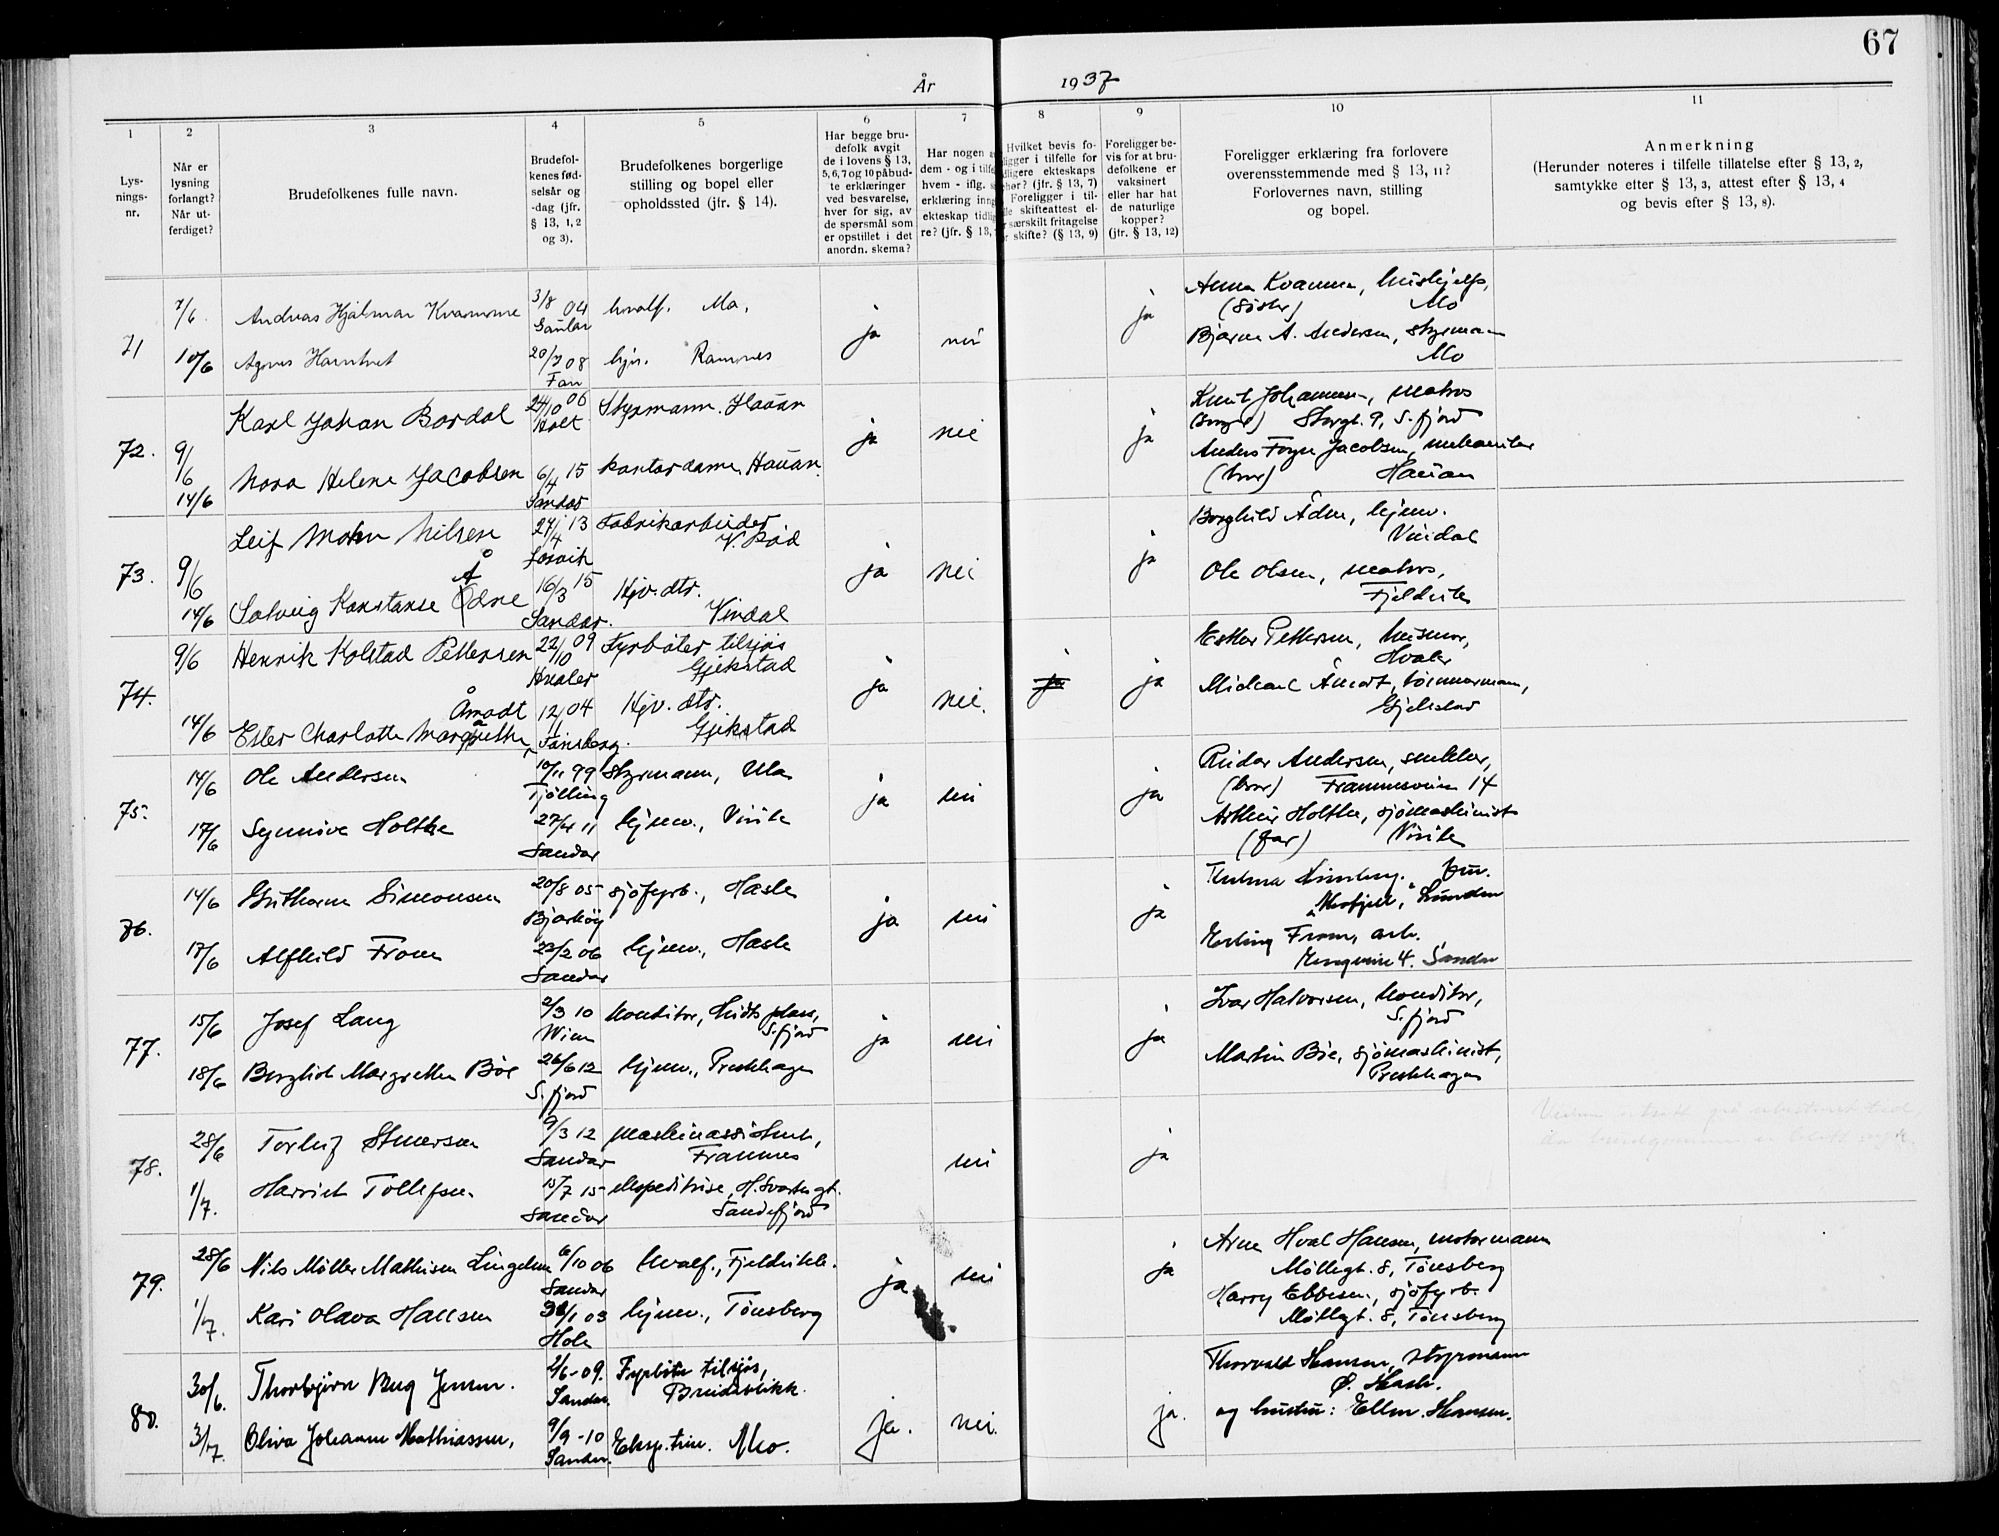 67
År 1937
1 2 3 4 5 6 7 8 9 10 11
Lys-
nings-
nr.
Når er
lysning
forlangt?
Når ut-
ferdiget?
Brudefolkenes fulle navn.
Brudefol-
kenes fød-
selsår og
-dag (jfr.
§ 13, 1, 2
og 3).
Brudefolkenes borgerlige
stilling og bopel eller
opholdssted (jfr. § 14).
Har begge bru-
defolk avgit
de i lovens § 13,
5, 6, 7 og 10 påbud-
te erklæringer
ved besvarelse,
hver for sig, av
de spørsmål som
er opstillet i det
anordn. skema?
Har nogen
dem - og i tilfe
hvem - iflg.
erklæring inng
ekteskap tidlig
re? (jfr. § 13,
Hvilket bevis fo-
ligger i tilfelle for
dligere ekteskaps
hør? (jfr. § 13, 7)
Foreligger i til-
lle skifteattest el-
særskilt fritagelse
skifte? (§ 13, 9)
Foreligger be-
vis for at bru-
defolkene er
vaksinert
eller har hat
de naturlige
kopper?
(jfr. § 13, 12)
Foreligger erklæring fra forlovere
overensstemmende med § 13, 11?
Forlovernes navn, stilling
og bopel.
Anmerkning
(Herunder noteres i tilfelle tillatelse efter § 13, 2,
samtykke efter § 13, 3, attest efter § 13, 4
og bevis efter § 13, 8).
71
7/6 Andreas Hjalmar Kvamme 3/8 04 hvalf. Mo.
Gaular
ja nei ja
10/6 Agnes 20/7 08 hjv. Ramnes
Anna Kvamme, hushjelp,
(søster) Mo
Bjarne A. Andersen, styrmann
Mo
72. 9/6 Karl Johan Bordal 24/10 06 Styrmann. Hauan
Holt
ja nei ja
14/6 Nora Helene Jacobsen 6/4 15 kontordame, Hauan.
Sandar
Knut Johannesen, matros
Storgt. 9, S.fjord
Anders Foyn Jacobsen, mekaniker
(bror) Hauan
73. 9/6 Leif Mohn Nilsen 27/4 13 Fabrikarbeider
V. Rød
ja nei ja
14/6 Solveig Konstanse Ødne 16/3 15 Hjv. dtr.
Å
Sandar. Vindal
Borghild Ådne, hjemv.
Vindal
Ole Olsen, matros,
Fjeldvik
74. 9/6 Henrik Kolstad Pettersen 22/10 09 Fyrbøter tilsjøs
Hvaler Gjekstad
ja nei. ja ja
Åmodt
14/6 Ester Charlotte Margrethe 12/11 04 Hjv. dtr.
Tønsberg. Gjekstad
Esther Pettersen, husmor,
Hvaler
Michael Åmodt, tømmermann,
Gjekstad
75. 14/6 Ole Andersen 10/11 99 styrmann, Ula
Tjølling
ja nei ja
17/6 Synnøve Holthe 27/4 11 hjemv., Virik
Sandar
Reidar Andersen, snekker,
(bror) Framnesveien 14
Arthur Holthe, sjømaskinist
(far) Virik
76. 14/6 Guthorm Simonsen 20/8 05 sjøfyrb., Hasle
Bjarkøy
ja nei ja
17/6 Alfhild From 23/2 06 hjemv., Hasle
Sandar
Thelma fru.
Lunden
Erling From, arb.
4. Sandar
77. 15/6 Josef Lang 2/3 10 konditor, S.fjord
Wien
ja nei ja
18/6 Borghild Margrethe Bøe 26/6 12 hjemv., Presthagen
S.fjord
Ivar Halvorsen, konditor,
S.fjord
Martin Bøe, sjømaskinist,
Presthagen
78. 28/6 Torleif 9/3 12 maskinassistent,
Sandar Framnes
nei ja
1/7. Harriet Tollefsen 15/7 15 ekspeditrise,
Sandar Sandefjord
79. 28/6 Nils Møller Mathisen Lingelem 6/10 06 hvalf., Fjeldvik.
Sandar
ja nei ja
1/7. Kari Olava Hansen /1 03 hjemv., Tønsberg
Hole
Arne Hval Hansen, motormann
Møllegt. 8, Tønsberg
Harry Ebbesen, sjøfyrb.
Møllegt. 8, Tønsberg
80. 30/6. Thorbjørn Bug Jensen. 2/6-09. Fyrbøter tilsjøs,
Sandar. Breidablikk.
ja. nei. ja.
3/7. Oliva Johanne Mathiassen, 9/9-10 Eksp.trise. Mo.
Sandar.
Thorvald Hansen, styrmann
Ø. Hasle.
og hustru: Ellen Hansen.